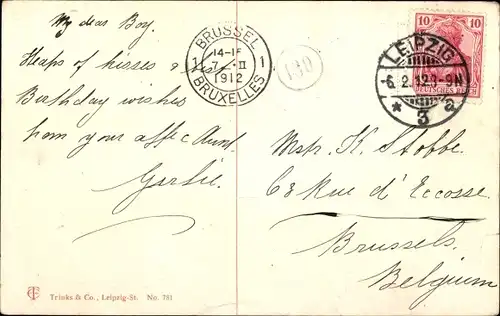 My dear Boy.
Heaps of kisses & best
Birthday wishes
from your affec Aunt.
Gertie.
BRUSSEL
1 14-15 1
7 - II
1912
BRUXELLES
130
10 10
DEUTSCHES REICH
LEIPZIG
6.2.12.8-9N.
* 3 a
Mstr. K. Stobbe.
63 Rue d'Ecosse.
Brussels.
Belgium
Trinks & Co., Leipzig-St. No. 781